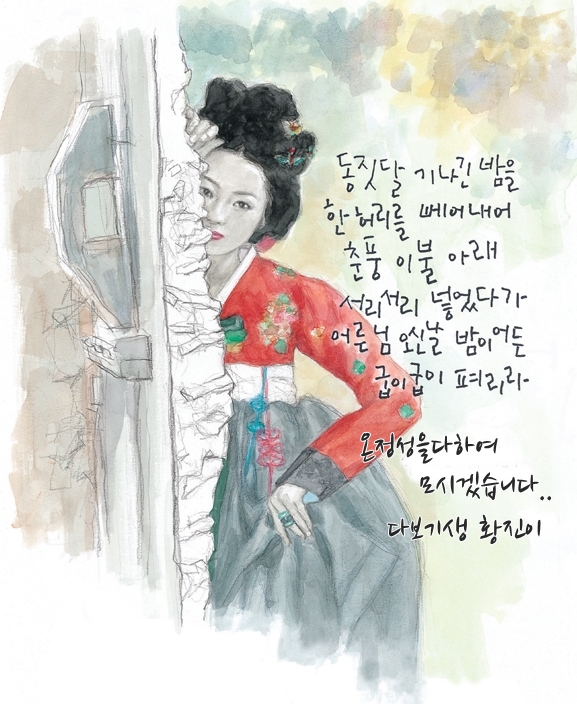 동짓달 기나긴 밤을
한 허리를 베어내어
춘풍 이불 아래
서리서리 넣었다가
어른님 오신날 밤이어든
굽이굽이 펴리라
온정성을다하여
모시겠습니다..
다보기생 황진이